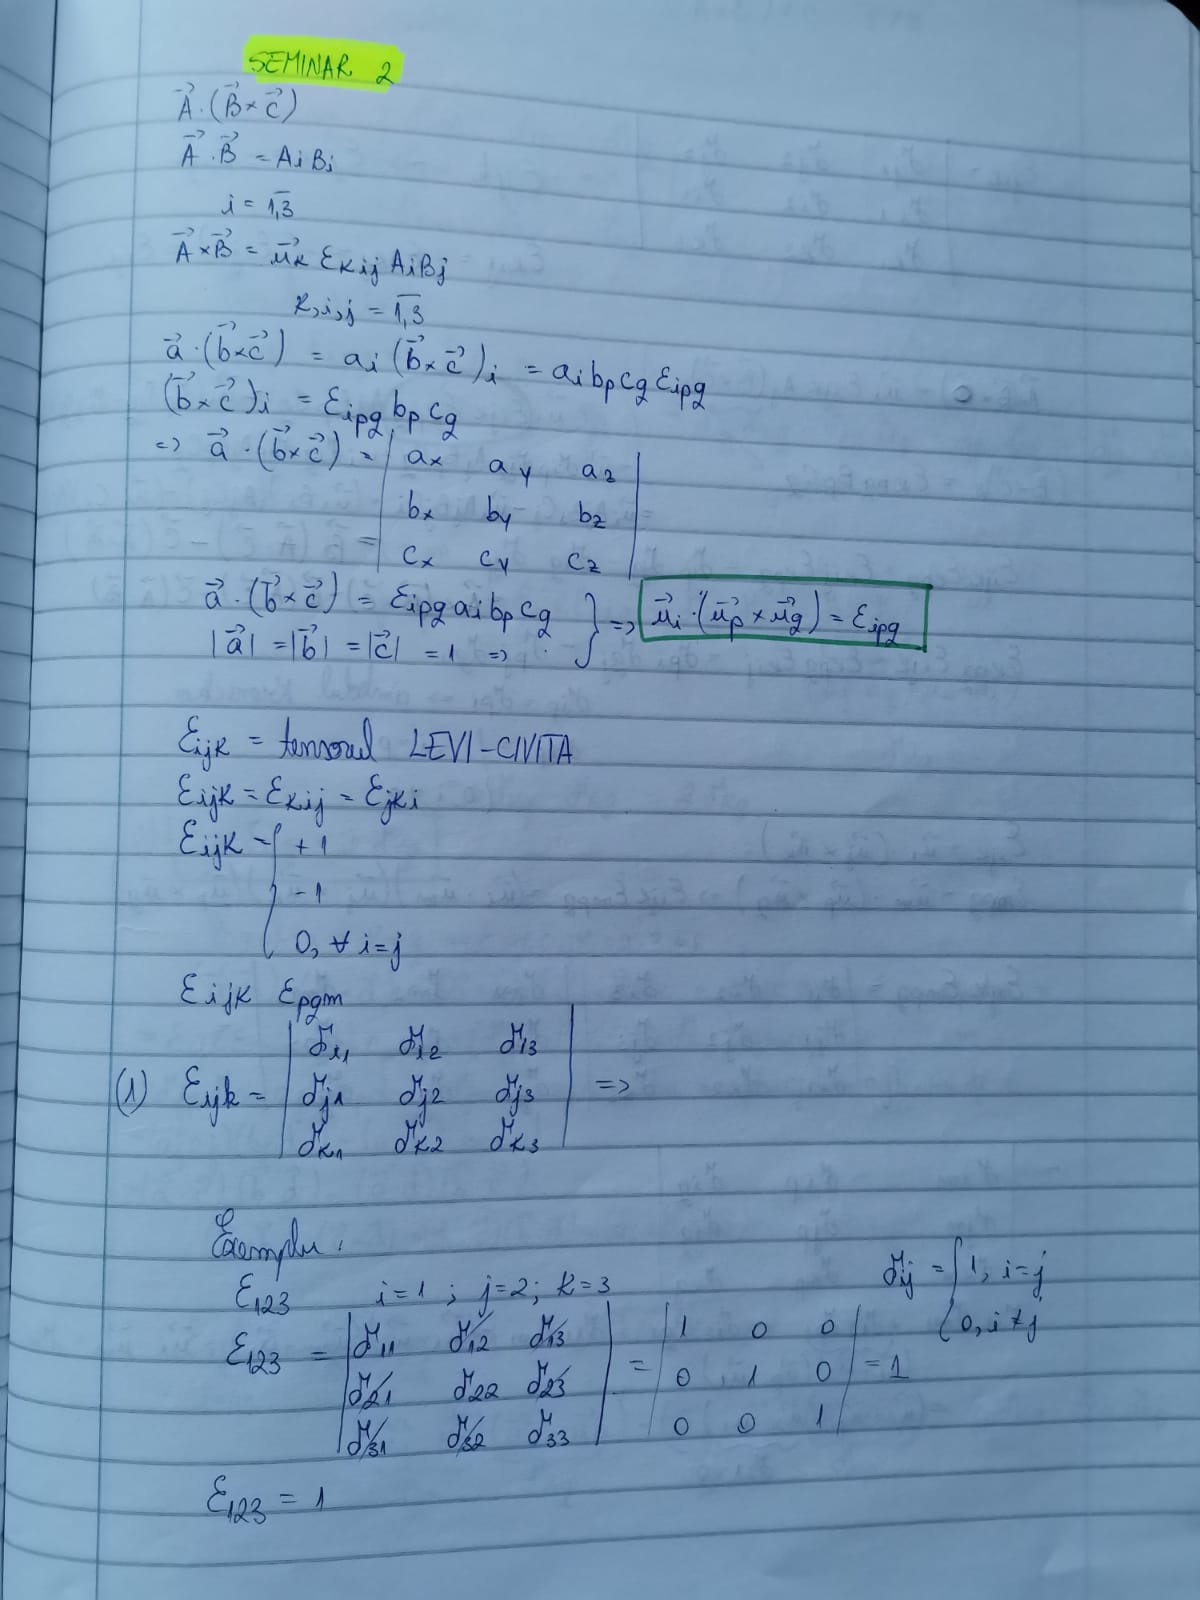 SEMINAR 2
A⃗·(B⃗×C⃗)
A⃗·B⃗ = AiBi
i = 1,3
A⃗×B⃗ = u⃗k εkij AiBj
k,i,j = 1,3
a⃗·(b⃗×c⃗) = ai(b⃗×c⃗)i = aibpcq εipq
(b⃗×c⃗)i = εipq bpcq
=> a⃗·(b⃗×c⃗) = | ax ay az |
| bx by bz |
= | cx cy cz |
a⃗·(b⃗×c⃗) = εipq aibpcq } => u⃗i·(u⃗p×u⃗q) = εipq
|a⃗| = |b⃗| = |c⃗| = 1 =>
εijk = tensorul LEVI-CIVITA
εijk = εkij = εjki
εijk = { +1
-1
0, ∀ i=j
εijk εpqm
| δi1 δi2 δi3 |
(1) εijk = | δj1 δj2 δj3 | =>
| δk1 δk2 δk3 |
Exemplu:
ε123 i=1 ; j=2; k=3 δij = { 1, i=j
0, i≠j
ε123 = | δ11 δ12 δ13 | = | 1 0 0 |
| δ21 δ22 δ23 | | 0 1 0 | = 1
| δ31 δ32 δ33 | | 0 0 1 |
ε123 = 1